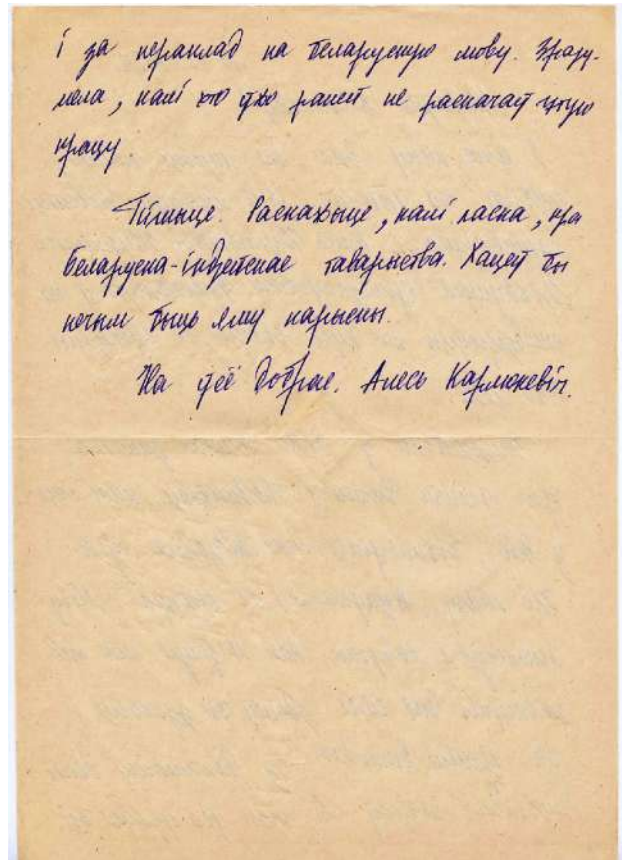 і за пераклад на беларускую мову. Зразу-
мела, калі хто ўжо раней не распачаў гэтую
працу
Пішыце. Раскажыце, калі ласка, пра
беларуска-індзейскае таварыства. Хацеў бы
нечым быць яму карысны.
На ўсё добрае. Алесь Карлюкевіч.